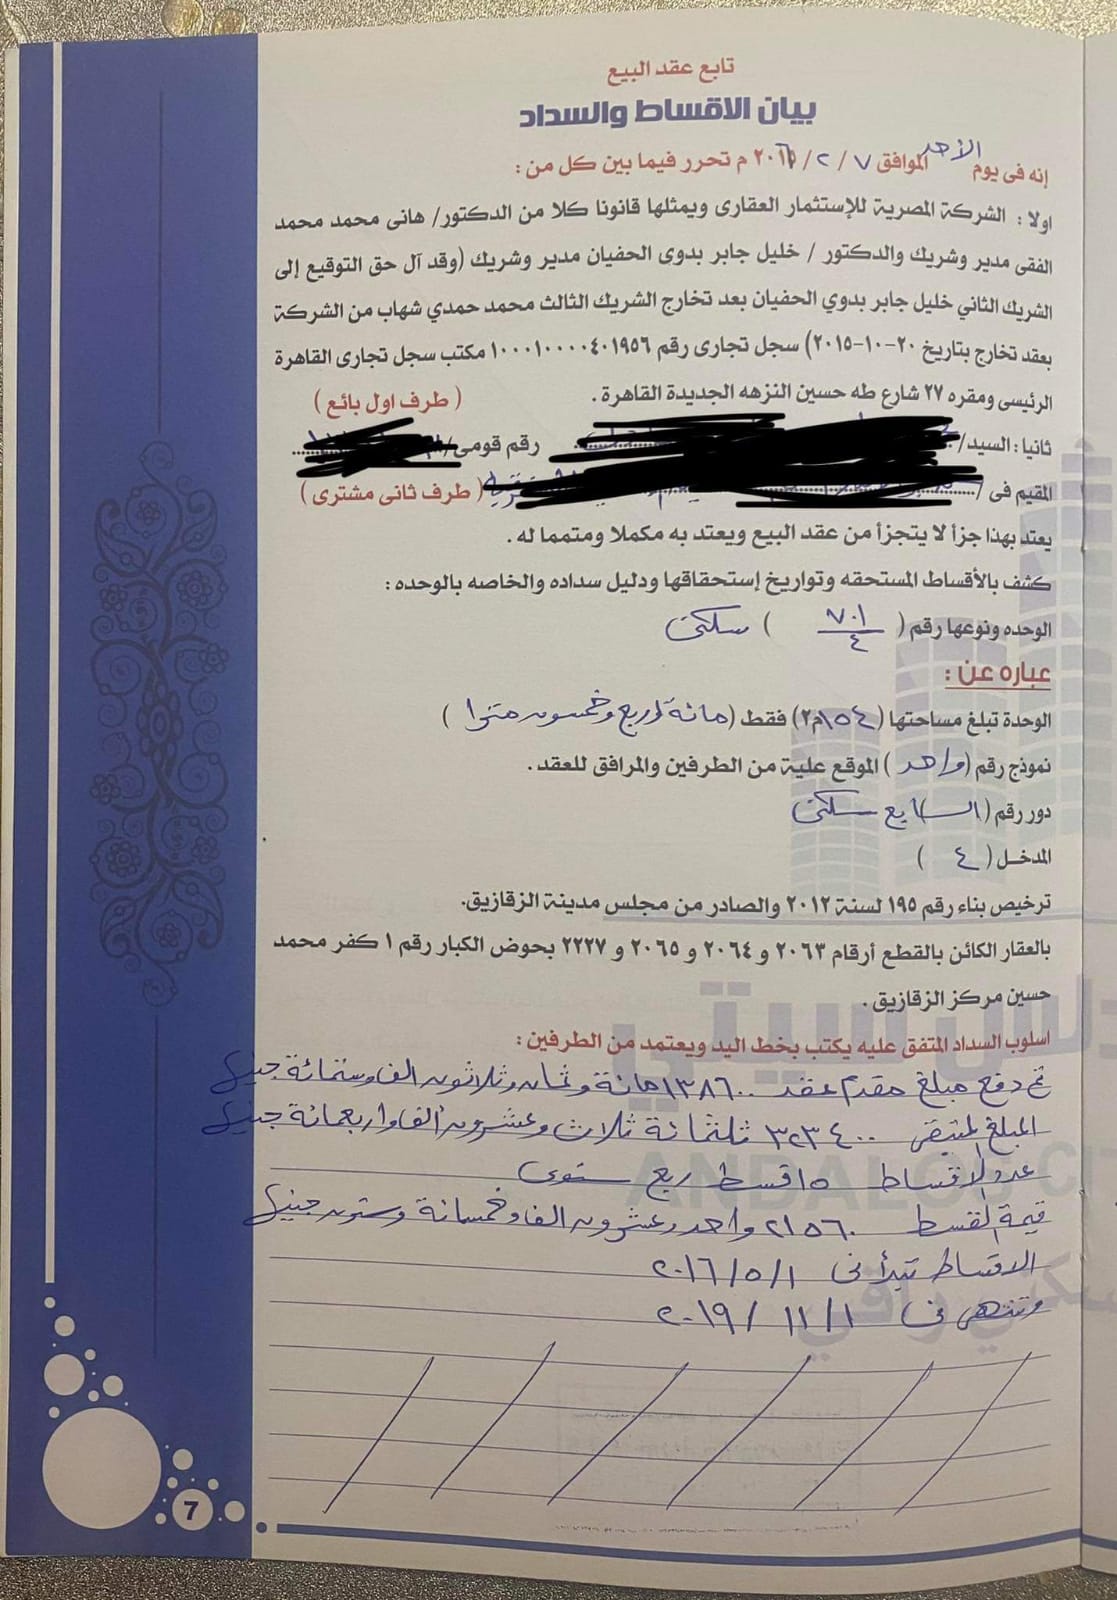 تابع عقد البيع
بيان الاقساط والسداد
إنه فى يوم الأحد الموافق ٧ / ٢ / ٢٠١٦ م تحرر فيما بين كل من :
اولا : الشركة المصرية للإستثمار العقارى ويمثلها قانونا كلا من الدكتور/ هانى محمد محمد
الفقى مدير وشريك والدكتور / خليل جابر بدوى الحفيان مدير وشريك (وقد آل حق التوقيع إلى
الشريك الثاني خليل جابر بدوي الحفيان بعد تخارج الشريك الثالث محمد حمدي شهاب من الشركة
بعقد تخارج بتاريخ ٢٠-١٠-٢٠١٥) سجل تجارى رقم ١٠٠٠١٠٠٠٠٤٠١٩٥٦ مكتب سجل تجارى القاهرة
الرئيسى ومقره ٢٧ شارع طه حسين النزهه الجديدة القاهرة . ( طرف اول بائع )
ثانيا : السيد/ رقم قومى/
المقيم فى / ( طرف ثانى مشترى )
يعتد بهذا جزأ لا يتجزأ من عقد البيع ويعتد به مكملا ومتمما له .
كشف بالأقساط المستحقه وتواريخ إستحقاقها ودليل سداده والخاصه بالوحده :
الوحده ونوعها رقم ( ٧٠١/٤ ) سكنى
عباره عن :
الوحدة تبلغ مساحتها (١٥٤م٢) فقط (مائة اربع وخمسون مترا )
نموذج رقم (واحد ) الموقع علية من الطرفين والمرافق للعقد .
دور رقم (السابع سكنى
المدخل ( ٤ )
ترخيص بناء رقم ١٩٥ لسنة ٢٠١٢ والصادر من مجلس مدينة الزقازيق.
بالعقار الكائن بالقطع أرقام ٢٠٦٣ و ٢٠٦٤ و ٢٠٦٥ و ٢٢٢٧ بحوض الكبار رقم ١ كفر محمد
حسين مركز الزقازيق .
اسلوب السداد المتفق عليه يكتب بخط اليد ويعتمد من الطرفين :
تم دفع مبلغ مقدم عقد ١٣٨٦٠٠ مائة وثمان وثلاثون الف وستمائة جنيها
المبلغ المتبقى ٣٢٣٤٠٠ ثلثمائة ثلاث وعشرون الف واربعمائة جنيها
عدد الاقساط ١٥ قسط ربع سنوى
قيمة القسط ٢١٥٦٠ واحد وعشرون الف وخمسمائة وستون جنيها
الاقساط تبدأ فى ٢٠١٦/٥/١
وتنتهى فى ٢٠١٩/١١/١
7